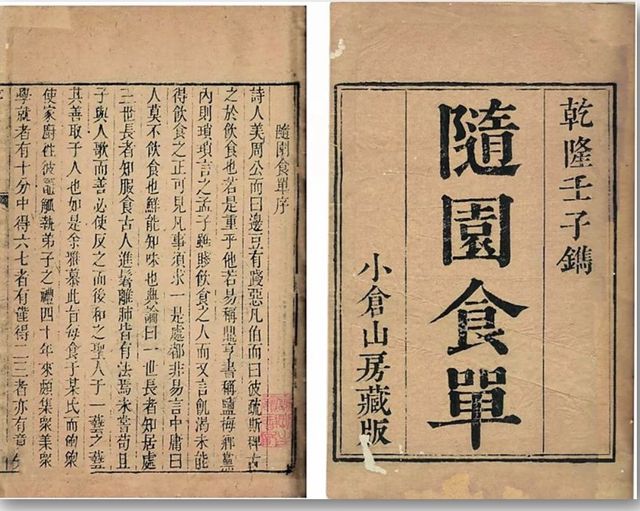 乾隆壬子鐫
隨園食單
小倉山房藏版
隨園食單序
詩人美周公而曰籩豆有踐惡凡伯而曰彼疏斯稗古
之於飲食也若是重乎他若易稱鼎亨書稱鹽梅鄉黨
內則瑣瑣言之孟子雖賤飲食之人而又言飢渴未能
得飲食之正可見凡事須求一是處都非易言中庸曰
人莫不飲食也鮮能知味也典論曰一世長者知居處
三世長者知服食古人進鬐離肺皆有法焉未嘗苟且
子與人歌而善必使反之而後和之聖人于一藝之
其善取于人也如是余雅慕此旨每食于某氏而
使家廚往彼竈觚執弟子之禮四十年來頗集衆美
學就者有十分中得六七者有僅得二三者亦有竟